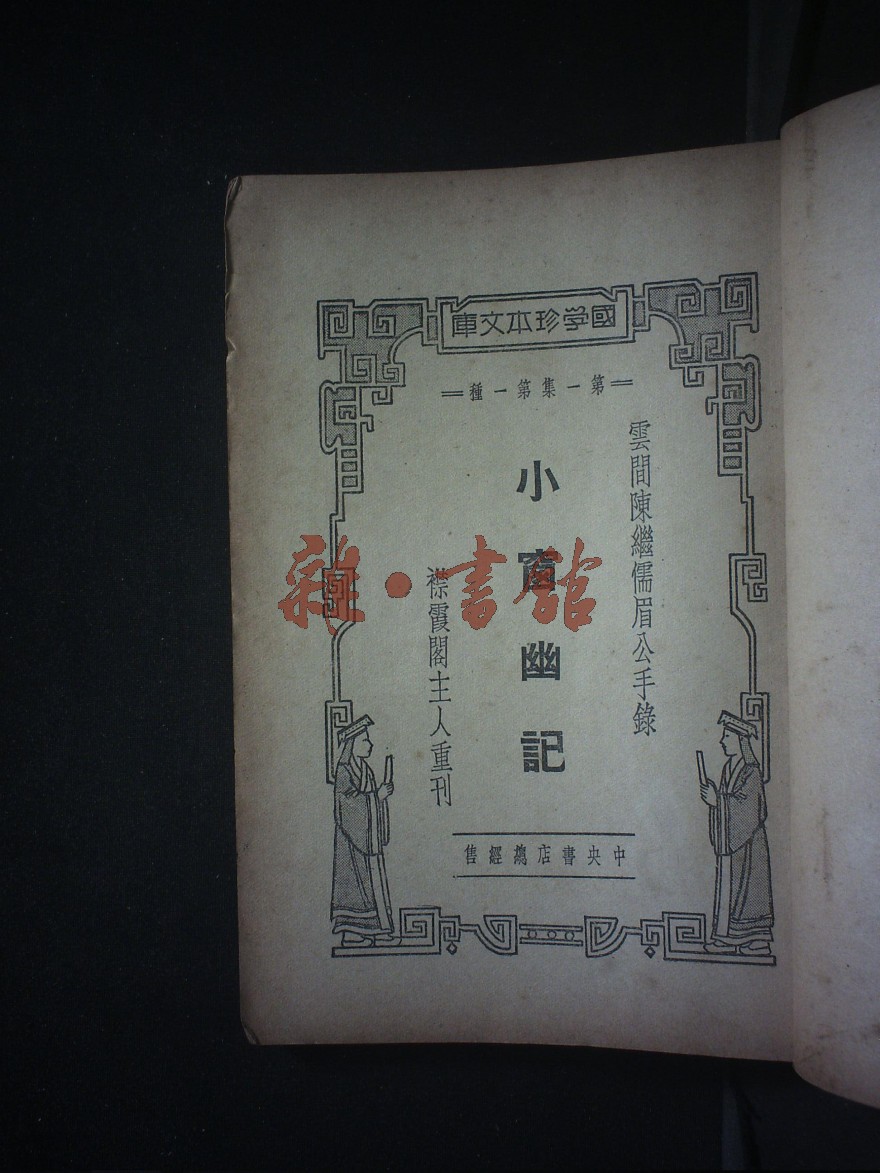 國学珍本文庫
第一集第一種
雲間陳繼儒眉公手錄
小窗幽記
襟霞閣主人重刊
中央書店總經售
雜·書館